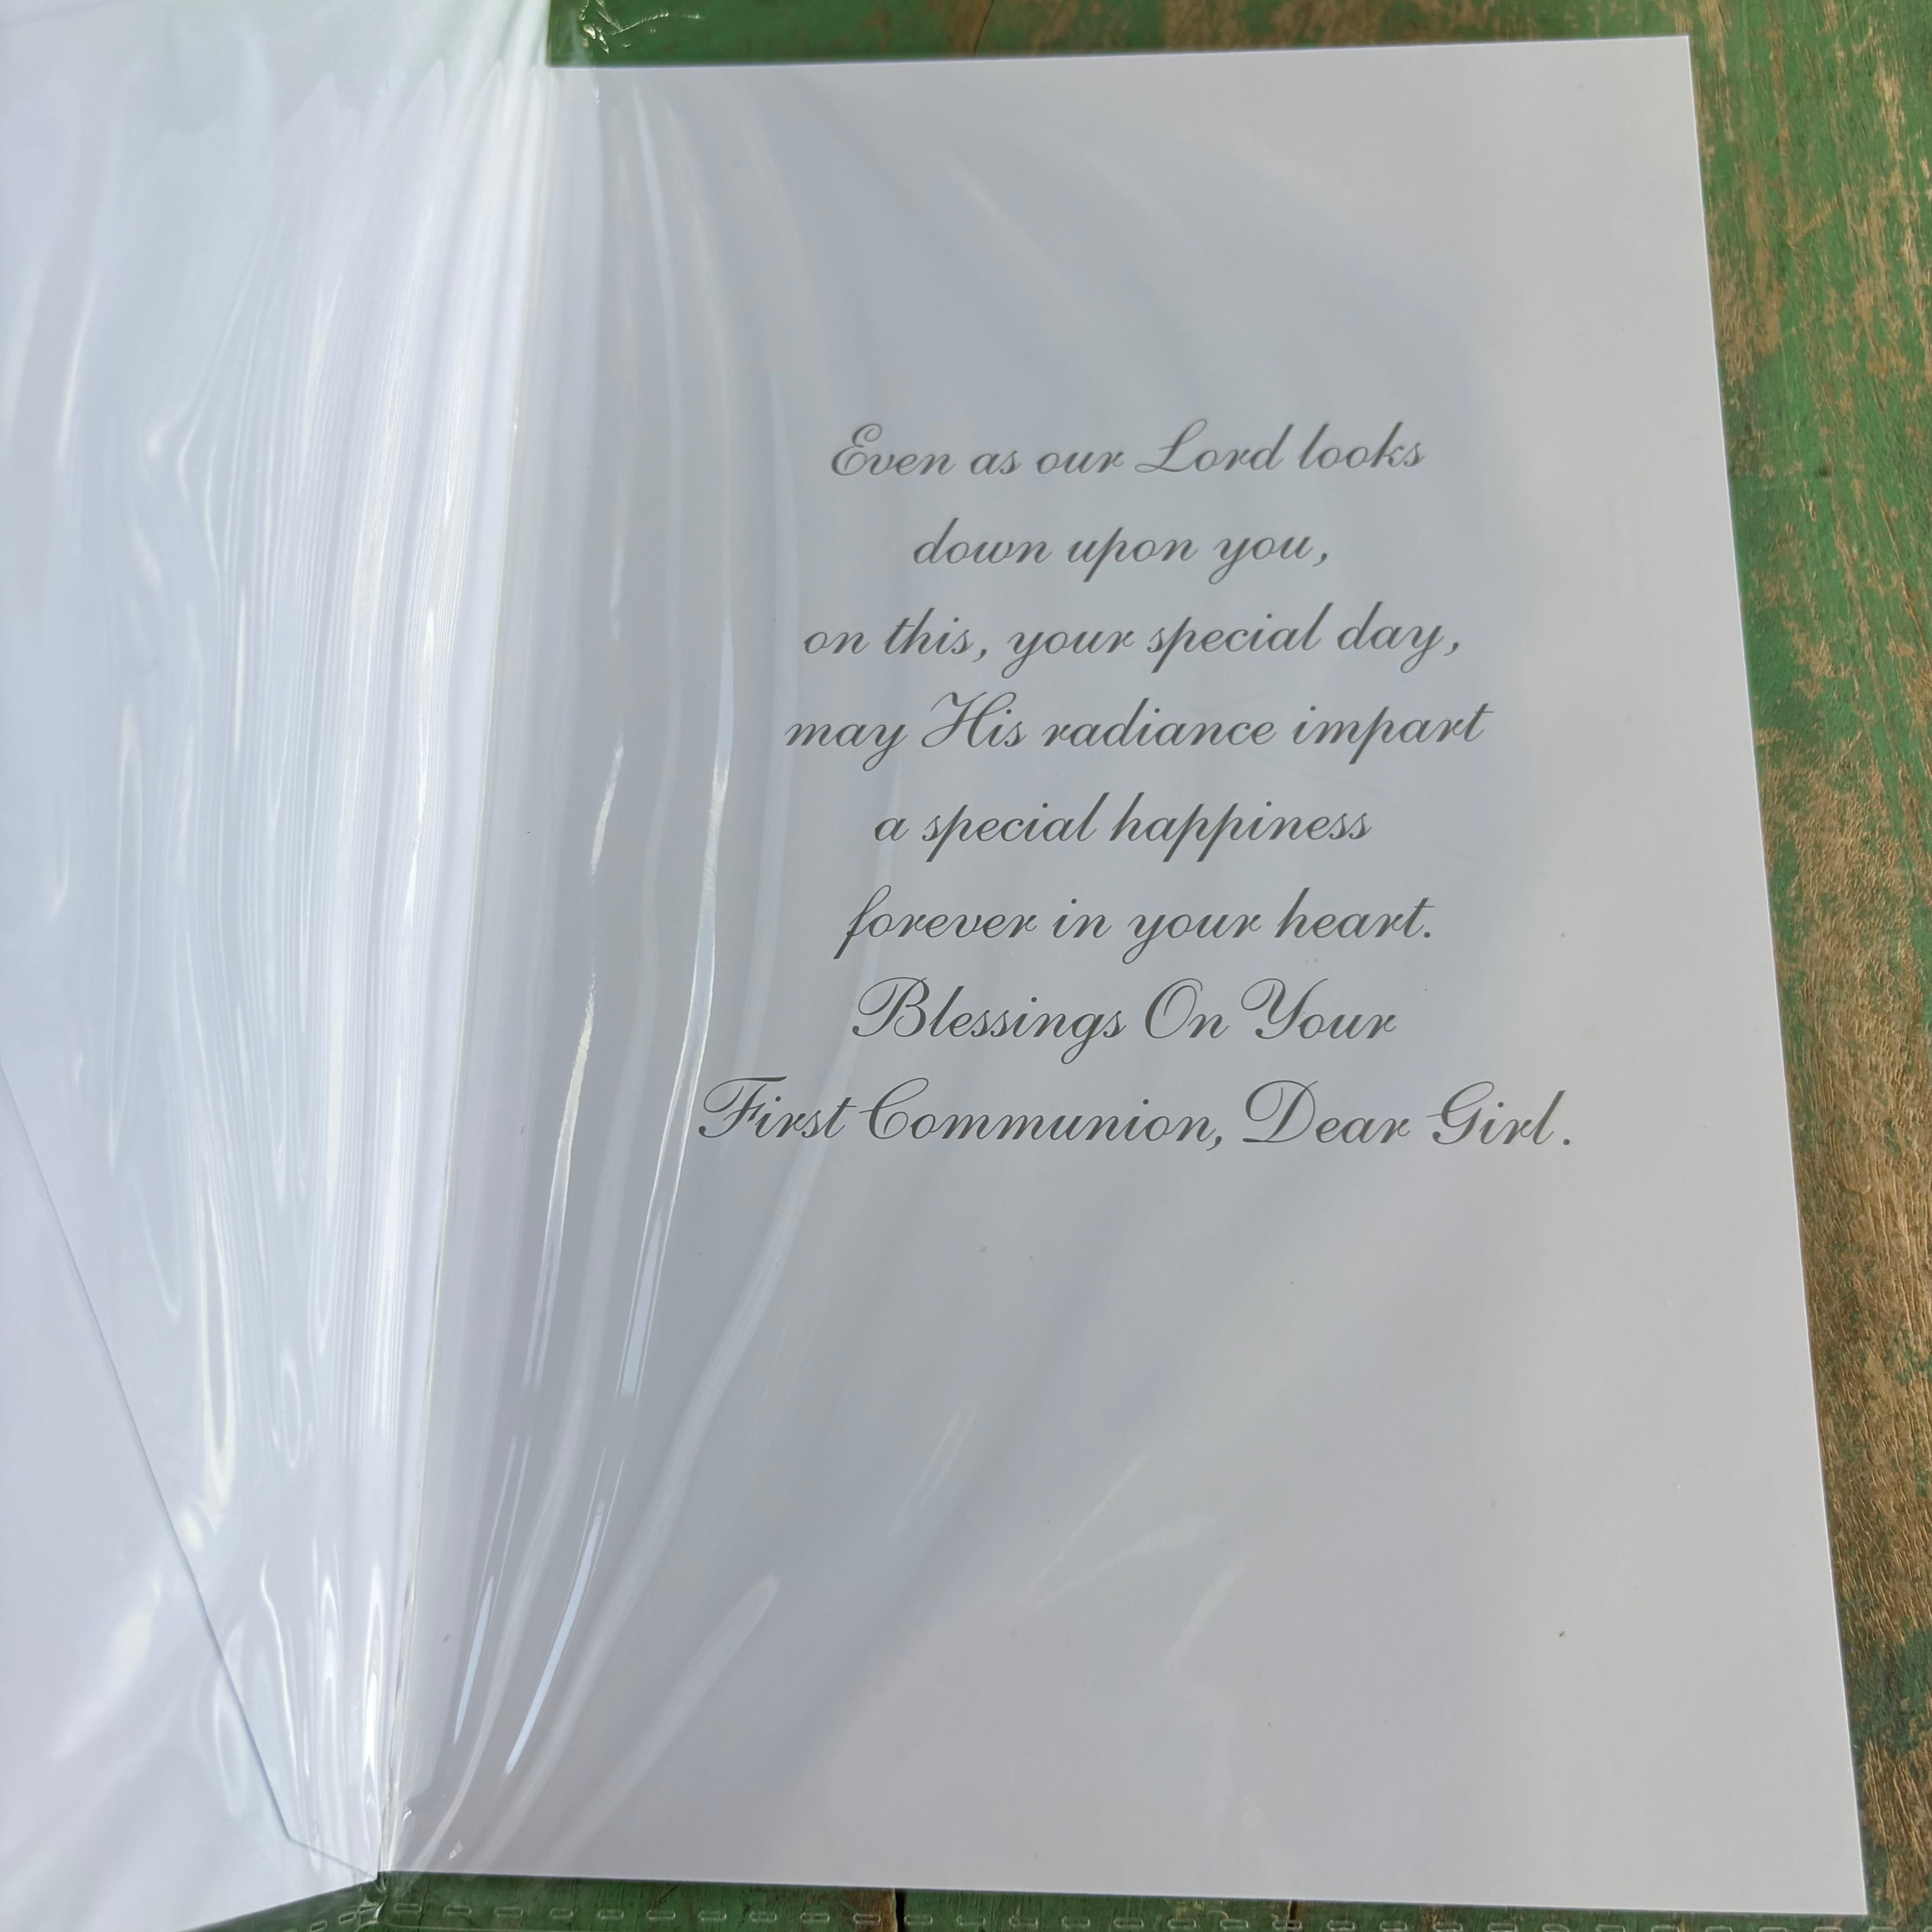 Even as our Lord looks
down upon you,
on this, your special day,
may His radiance impart
a special happiness
forever in your heart.
Blessings On Your
First Communion, Dear Girl.